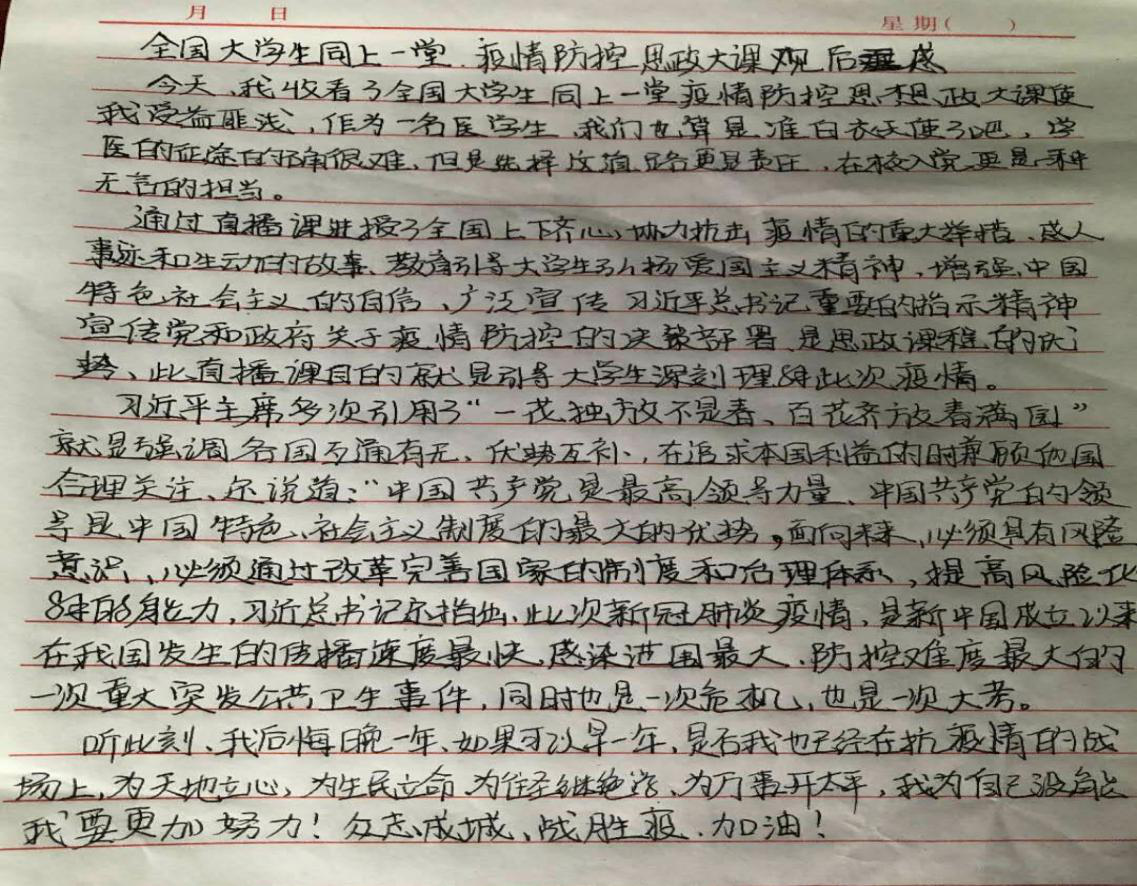 月 日 星期( )
全国大学生同上一堂疫情防控思政大课观后感
今天,我收看了全国大学生同上一堂疫情防控思想政大课使
我受益匪浅,作为一名医学生,我们也算是准白衣天使了吧,学
医的征途的确很难,但是选择这道路更是责任,在校入党更是一种
无言的担当。
通过直播课讲授了全国上下齐心,协力抗击疫情的重大举措、感人
事迹和生动的故事、教育引导大学生弘扬爱国主义精神,增强中国
特色社会主义的自信、广泛宣传习近平总书记重要的指示精神
宣传党和政府关于疫情防控的决策部署,是思政课程的优
势、此直播课目的就是引导大学生深刻理解此次疫情。
习近平主席多次引用了“一花独放不是春、百花齐放春满园”
就是强调各国互通有无、优势互补,在追求本国利益的时兼顾他国
合理关注、还说道:“中国共产党是最高领导力量、中国共产党的领
导是中国特色社会主义制度的最大的优势,面向未来,必须具有风险
意识、必须通过改革完善国家的制度和治理体系,提高风险化
解的能力,习近总书记还指出,此次新冠肺炎疫情,是新中国成立以来
在我国发生的传播速度最快,感染范围最大、防控难度最大的
一次重大突发公共卫生事件,同时也是一次危机,也是一次大考。
听此刻、我后悔晚一年、如果可以早一年,是否我也已经在抗疫情的战
场上,为天地立心,为生民立命,为往圣继绝学、为万事开太平,我为自己没能
我要更加努力!众志成城、战胜疫、加油!